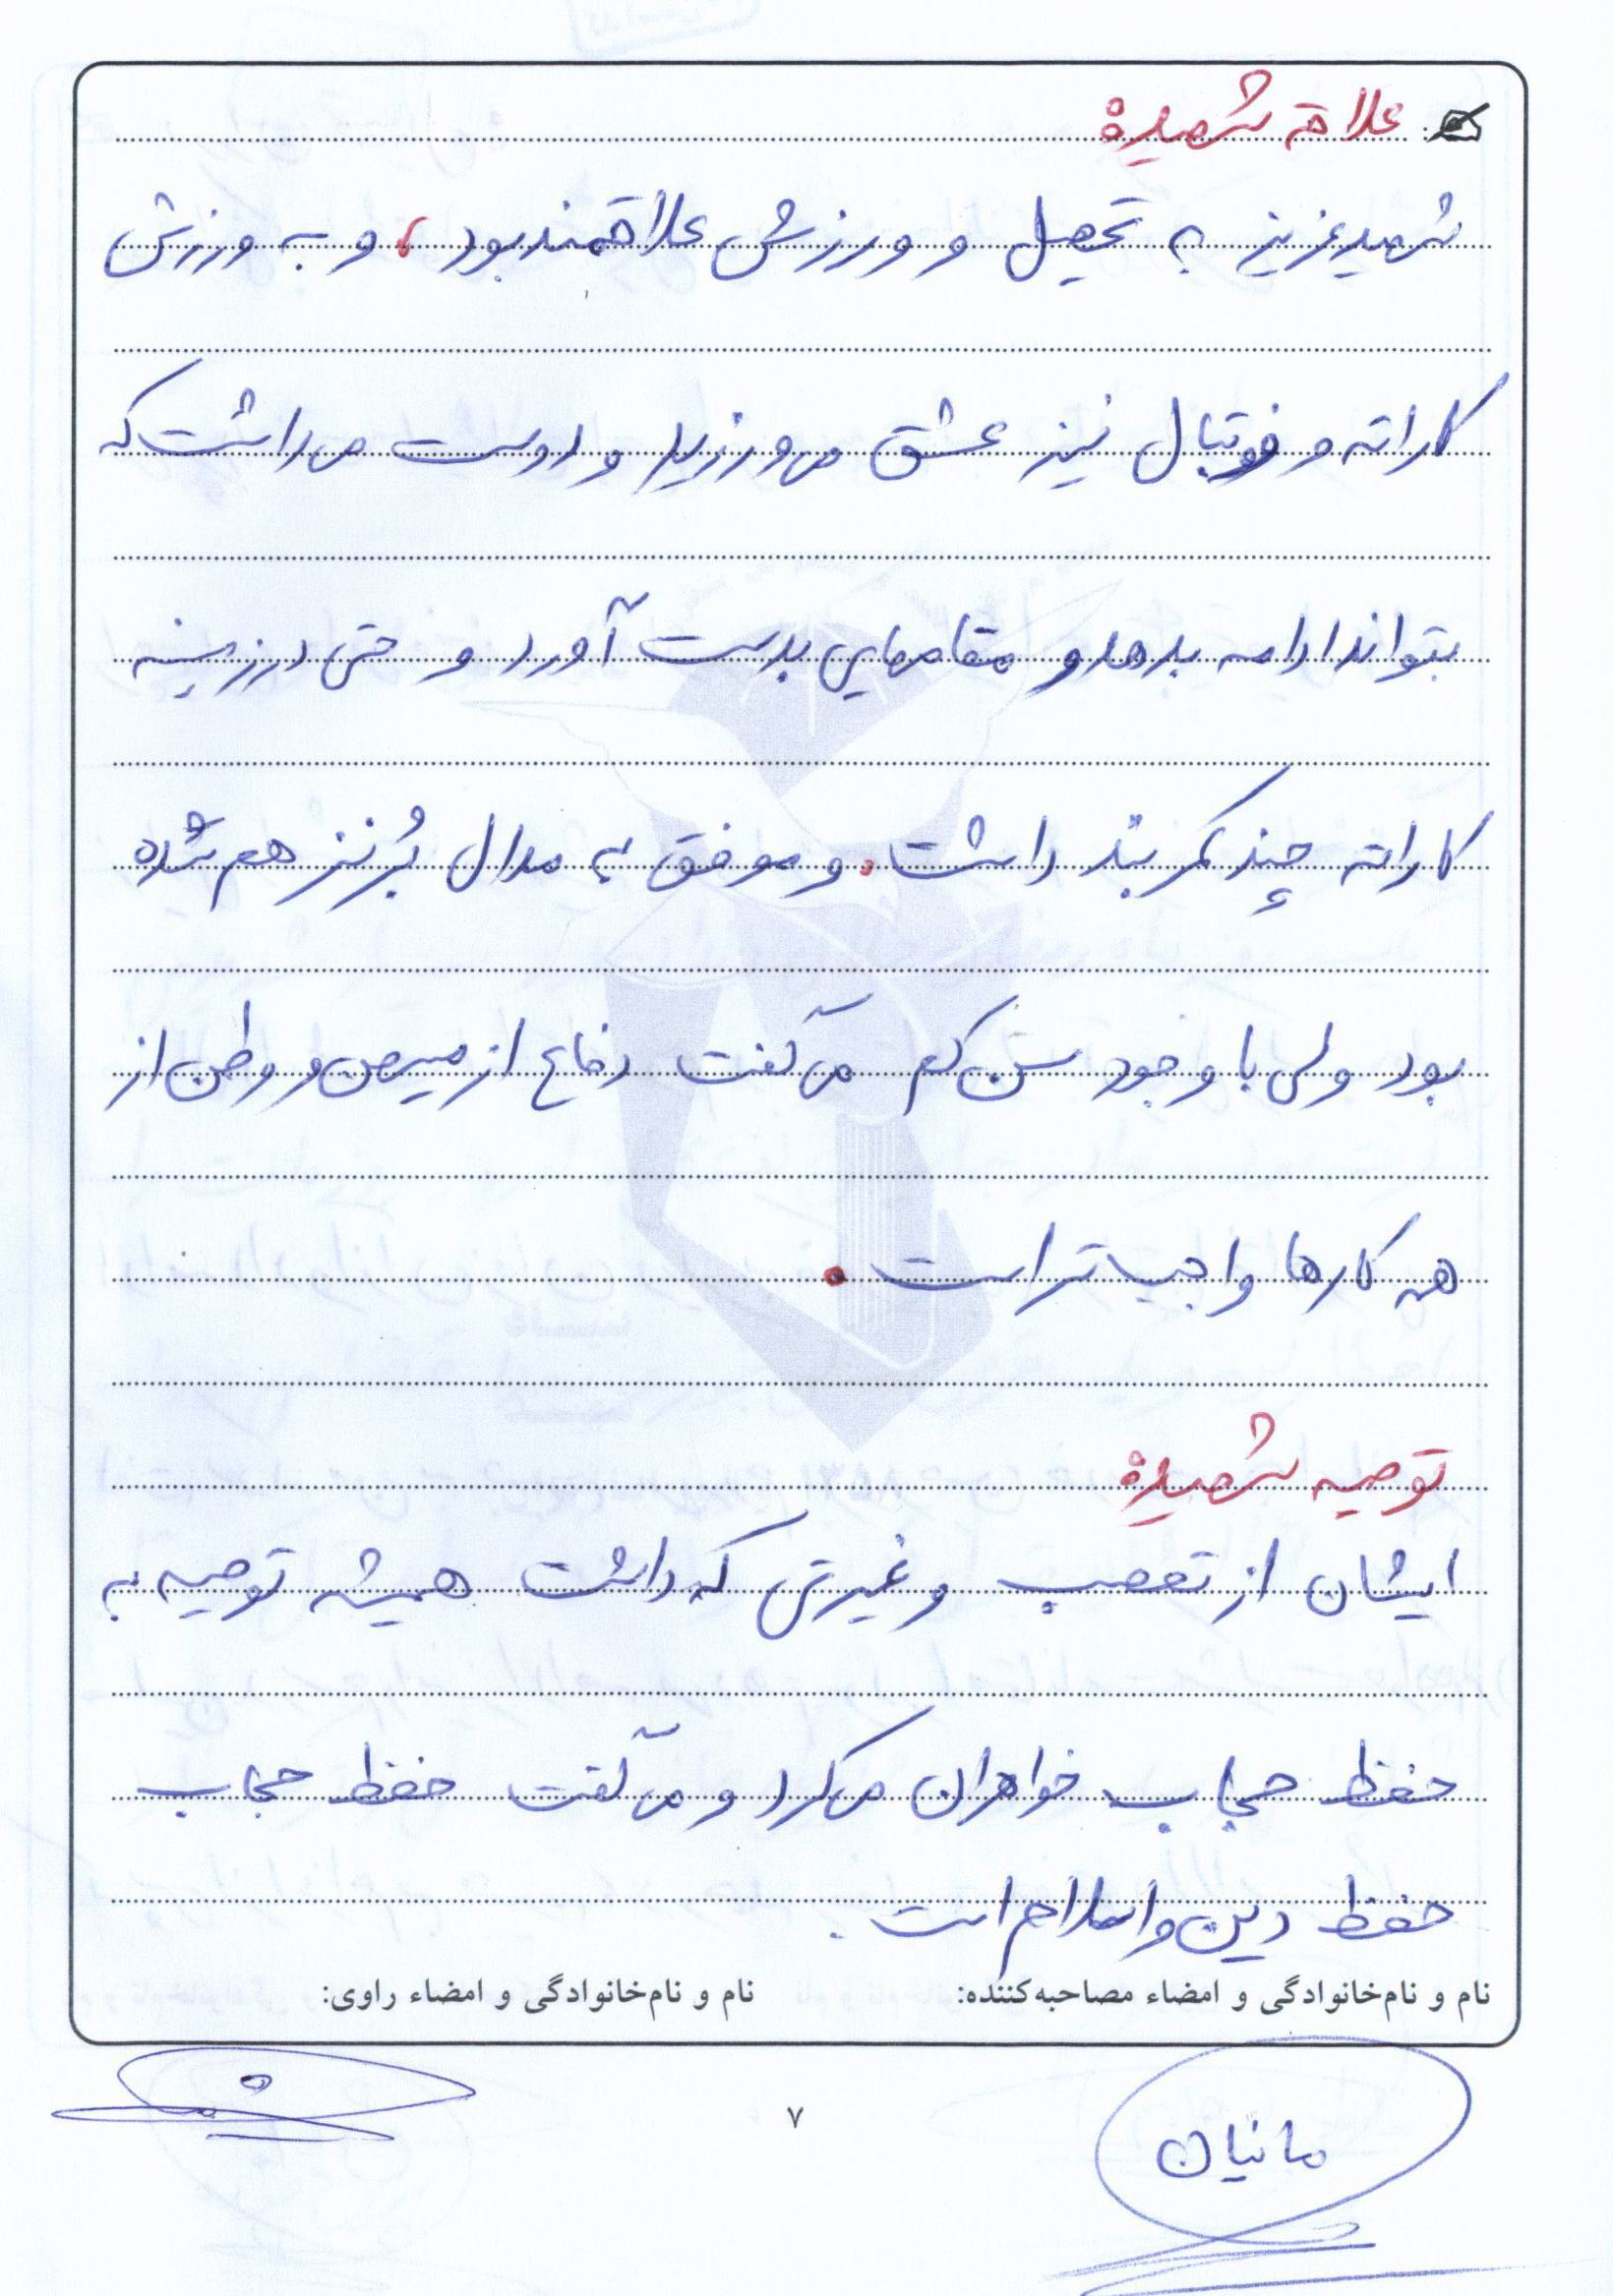 علاقه شهید:
شهید عزیز به تحصیل و ورزش علاقمند بود، و به ورزش
کاراته و فوتبال نیز عشق می‌ورزید و دوست می‌داشت که
بتواند ادامه بدهد و مقام‌هایی بدست آورد و حتی در زمینه
کاراته چند کمربند داشت. و موفق به مدال بُرنز هم شده
بود ولی با وجود سن کم می‌گفت دفاع از میهن و وطن از
همه کارها واجب‌تر است.
توصیه شهید:
ایشان از تعصب و غیرتی که داشت همیشه توصیه به
حفظ حجاب خواهران می‌کرد و می‌گفت حفظ حجاب
حفظ دین و اسلام است.
نام و نام‌خانوادگی و امضاء مصاحبه‌کننده: نام و نام‌خانوادگی و امضاء راوی:
۷
مانیان